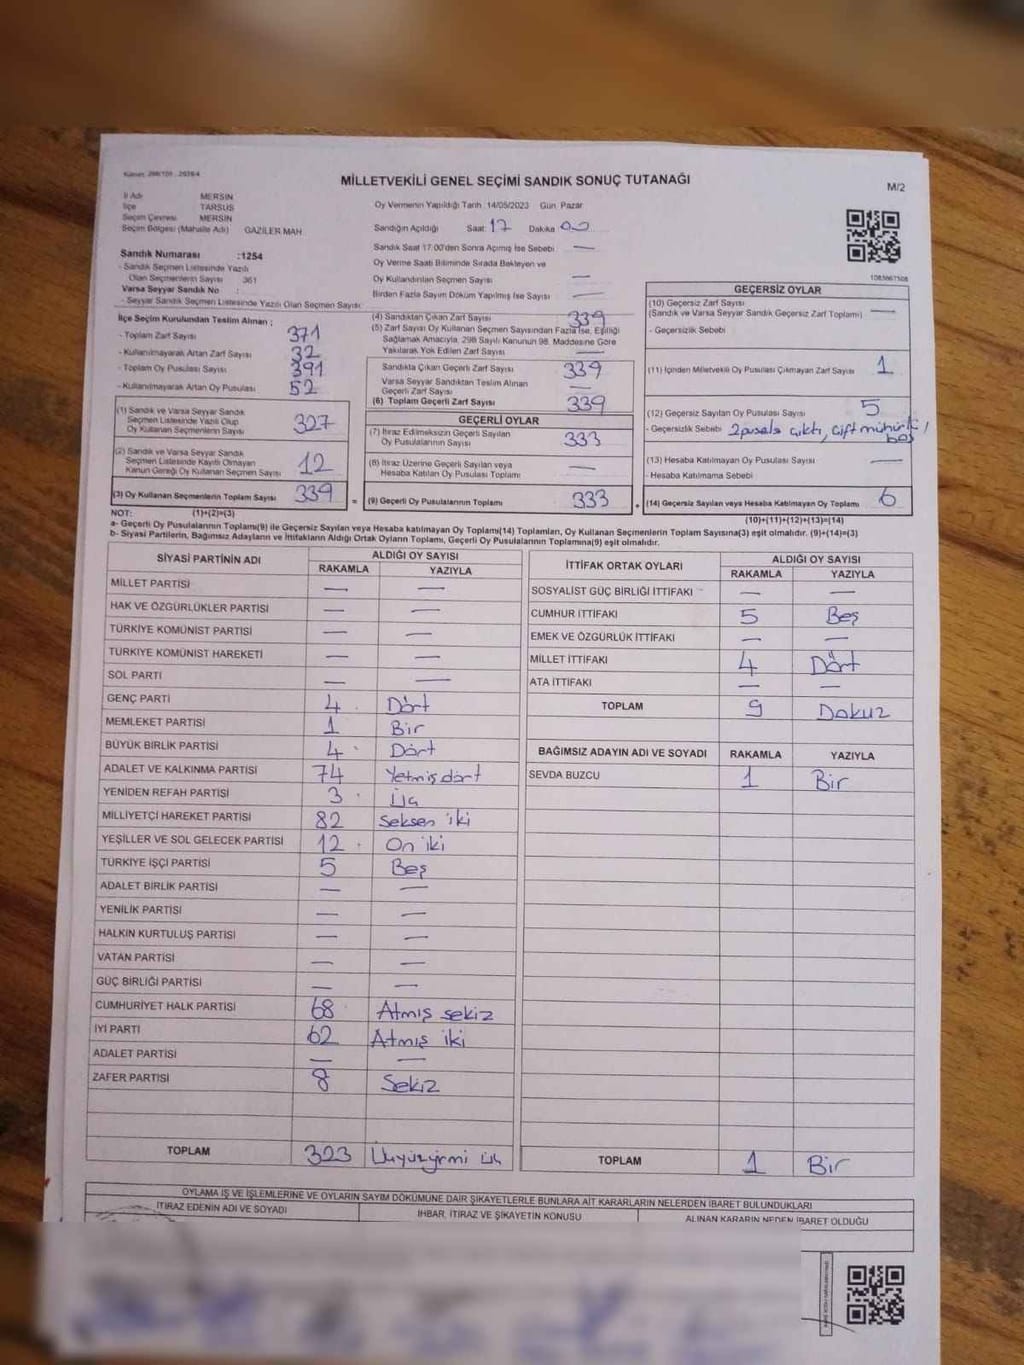 MİLLETVEKİLİ GENEL SEÇİMİ SANDIK SONUÇ TUTANAĞI
M/2
İl Adı MERSİN
İlçe TARSUS
Seçim Çevresi MERSİN
Seçim Bölgesi (Mahalle Adı) GAZİLER MAH.
Oy Vermenin Yapıldığı Tarih :14/05/2023 Gün: Pazar
Sandığın Açıldığı Saat: 17 Dakika 00
Sandık Saat 17:00'den Sonra Açılmış İse Sebebi —
Oy Verme Saati Bitiminde Sırada Bekleyen ve
Oy Kullandırılan Seçmen Sayısı —
Birden Fazla Sayım Döküm Yapılmış İse Sayısı —
Sandık Numarası :1254
- Sandık Seçmen Listesinde Yazılı
Olan Seçmenlerin Sayısı 361
Varsa Seyyar Sandık No :
- Seyyar Sandık Seçmen Listesinde Yazılı Olan Seçmen Sayısı
İlçe Seçim Kurulundan Teslim Alınan ;
- Toplam Zarf Sayısı 371
- Kullanılmayarak Artan Zarf Sayısı 32
- Toplam Oy Pusulası Sayısı 391
- Kullanılmayarak Artan Oy Pusulası 52
(1) Sandık ve Varsa Seyyar Sandık
Seçmen Listesinde Yazılı Olup
Oy Kullanan Seçmenlerin Sayısı 327
(2) Sandık ve Varsa Seyyar Sandık
Seçmen Listesinde Kayıtlı Olmayan
Kanun Gereği Oy Kullanan Seçmen Sayısı 12
(3) Oy Kullanan Seçmenlerin Toplam Sayısı 339
(4) Sandıktan Çıkan Zarf Sayısı 339
(5) Zarf Sayısı Oy Kullanan Seçmen Sayısından Fazla İse, Eşitliği
Sağlamak Amacıyla, 298 Sayılı Kanunun 98. Maddesine Göre
Yakılarak Yok Edilen Zarf Sayısı —
Sandıkta Çıkan Geçerli Zarf Sayısı 339
Varsa Seyyar Sandıktan Teslim Alınan
Geçerli Zarf Sayısı —
(6) Toplam Geçerli Zarf Sayısı 339
GEÇERLİ OYLAR
(7) İtiraz Edilmeksizin Geçerli Sayılan
Oy Pusulalarının Sayısı 333
(8) İtiraz Üzerine Geçerli Sayılan veya
Hesaba Katılan Oy Pusulaları Toplamı —
= (9) Geçerli Oy Pusulalarının Toplamı 333
1083867308
GEÇERSİZ OYLAR
(10) Geçersiz Zarf Sayısı
(Sandık ve Varsa Seyyar Sandık Geçersiz Zarf Toplamı) —
- Geçersizlik Sebebi
(11) İçinden Milletvekili Oy Pusulası Çıkmayan Zarf Sayısı 1
(12) Geçersiz Sayılan Oy Pusulası Sayısı 5
- Geçersizlik Sebebi 2 pusula çıktı, çift mühürlü,
boş
(13) Hesaba Katılmayan Oy Pusulası Sayısı —
- Hesaba Katılmama Sebebi
+ (14) Geçersiz Sayılan veya Hesaba Katılmayan Oy Toplamı 6
NOT: (1)+(2)=(3) (10)+(11)+(12)+(13)=(14)
a- Geçerli Oy Pusulalarının Toplamı(9) ile Geçersiz Sayılan veya Hesaba katılmayan Oy Toplamı(14) Toplamları, Oy Kullanan Seçmenlerin Toplam Sayısına(3) eşit olmalıdır. (9)+(14)=(3)
b- Siyasi Partilerin, Bağımsız Adayların ve İttifakların Aldığı Ortak Oyların Toplamı, Geçerli Oy Pusulalarının Toplamına(9) eşit olmalıdır.
SİYASİ PARTİNİN ADI ALDIĞI OY SAYISI
RAKAMLA YAZIYLA
MİLLET PARTİSİ — —
HAK VE ÖZGÜRLÜKLER PARTİSİ — —
TÜRKİYE KOMÜNİST PARTİSİ — —
TÜRKİYE KOMÜNİST HAREKETİ — —
SOL PARTİ — —
GENÇ PARTİ 4 Dört
MEMLEKET PARTİSİ 1 Bir
BÜYÜK BİRLİK PARTİSİ 4 Dört
ADALET VE KALKINMA PARTİSİ 74 Yetmiş dört
YENİDEN REFAH PARTİSİ 3 Üç
MİLLİYETÇİ HAREKET PARTİSİ 82 Seksen iki
YEŞİLLER VE SOL GELECEK PARTİSİ 12 On iki
TÜRKİYE İŞÇİ PARTİSİ 5 Beş
ADALET BİRLİK PARTİSİ — —
YENİLİK PARTİSİ — —
HALKIN KURTULUŞ PARTİSİ — —
VATAN PARTİSİ — —
GÜÇ BİRLİĞİ PARTİSİ — —
CUMHURİYET HALK PARTİSİ 68 Atmış sekiz
İYİ PARTİ 62 Atmış iki
ADALET PARTİSİ — —
ZAFER PARTİSİ 8 Sekiz
TOPLAM 323 Üçyüzyirmi üç
İTTİFAK ORTAK OYLARI ALDIĞI OY SAYISI
RAKAMLA YAZIYLA
SOSYALİST GÜÇ BİRLİĞİ İTTİFAKI — —
CUMHUR İTTİFAKI 5 Beş
EMEK VE ÖZGÜRLÜK İTTİFAKI — —
MİLLET İTTİFAKI 4 Dört
ATA İTTİFAKI — —
TOPLAM 9 Dokuz
BAĞIMSIZ ADAYIN ADI VE SOYADI RAKAMLA YAZIYLA
SEVDA BUZCU 1 Bir
TOPLAM 1 Bir
OYLAMA İŞ VE İŞLEMLERİNE VE OYLARIN SAYIM DÖKÜMÜNE DAİR ŞİKAYETLERLE BUNLARA AİT KARARLARIN NELERDEN İBARET BULUNDUKLARI
İTİRAZ EDENİN ADI VE SOYADI İHBAR, İTİRAZ VE ŞİKAYETİN KONUSU ALINAN KARARIN NEDEN İBARET OLDUĞU